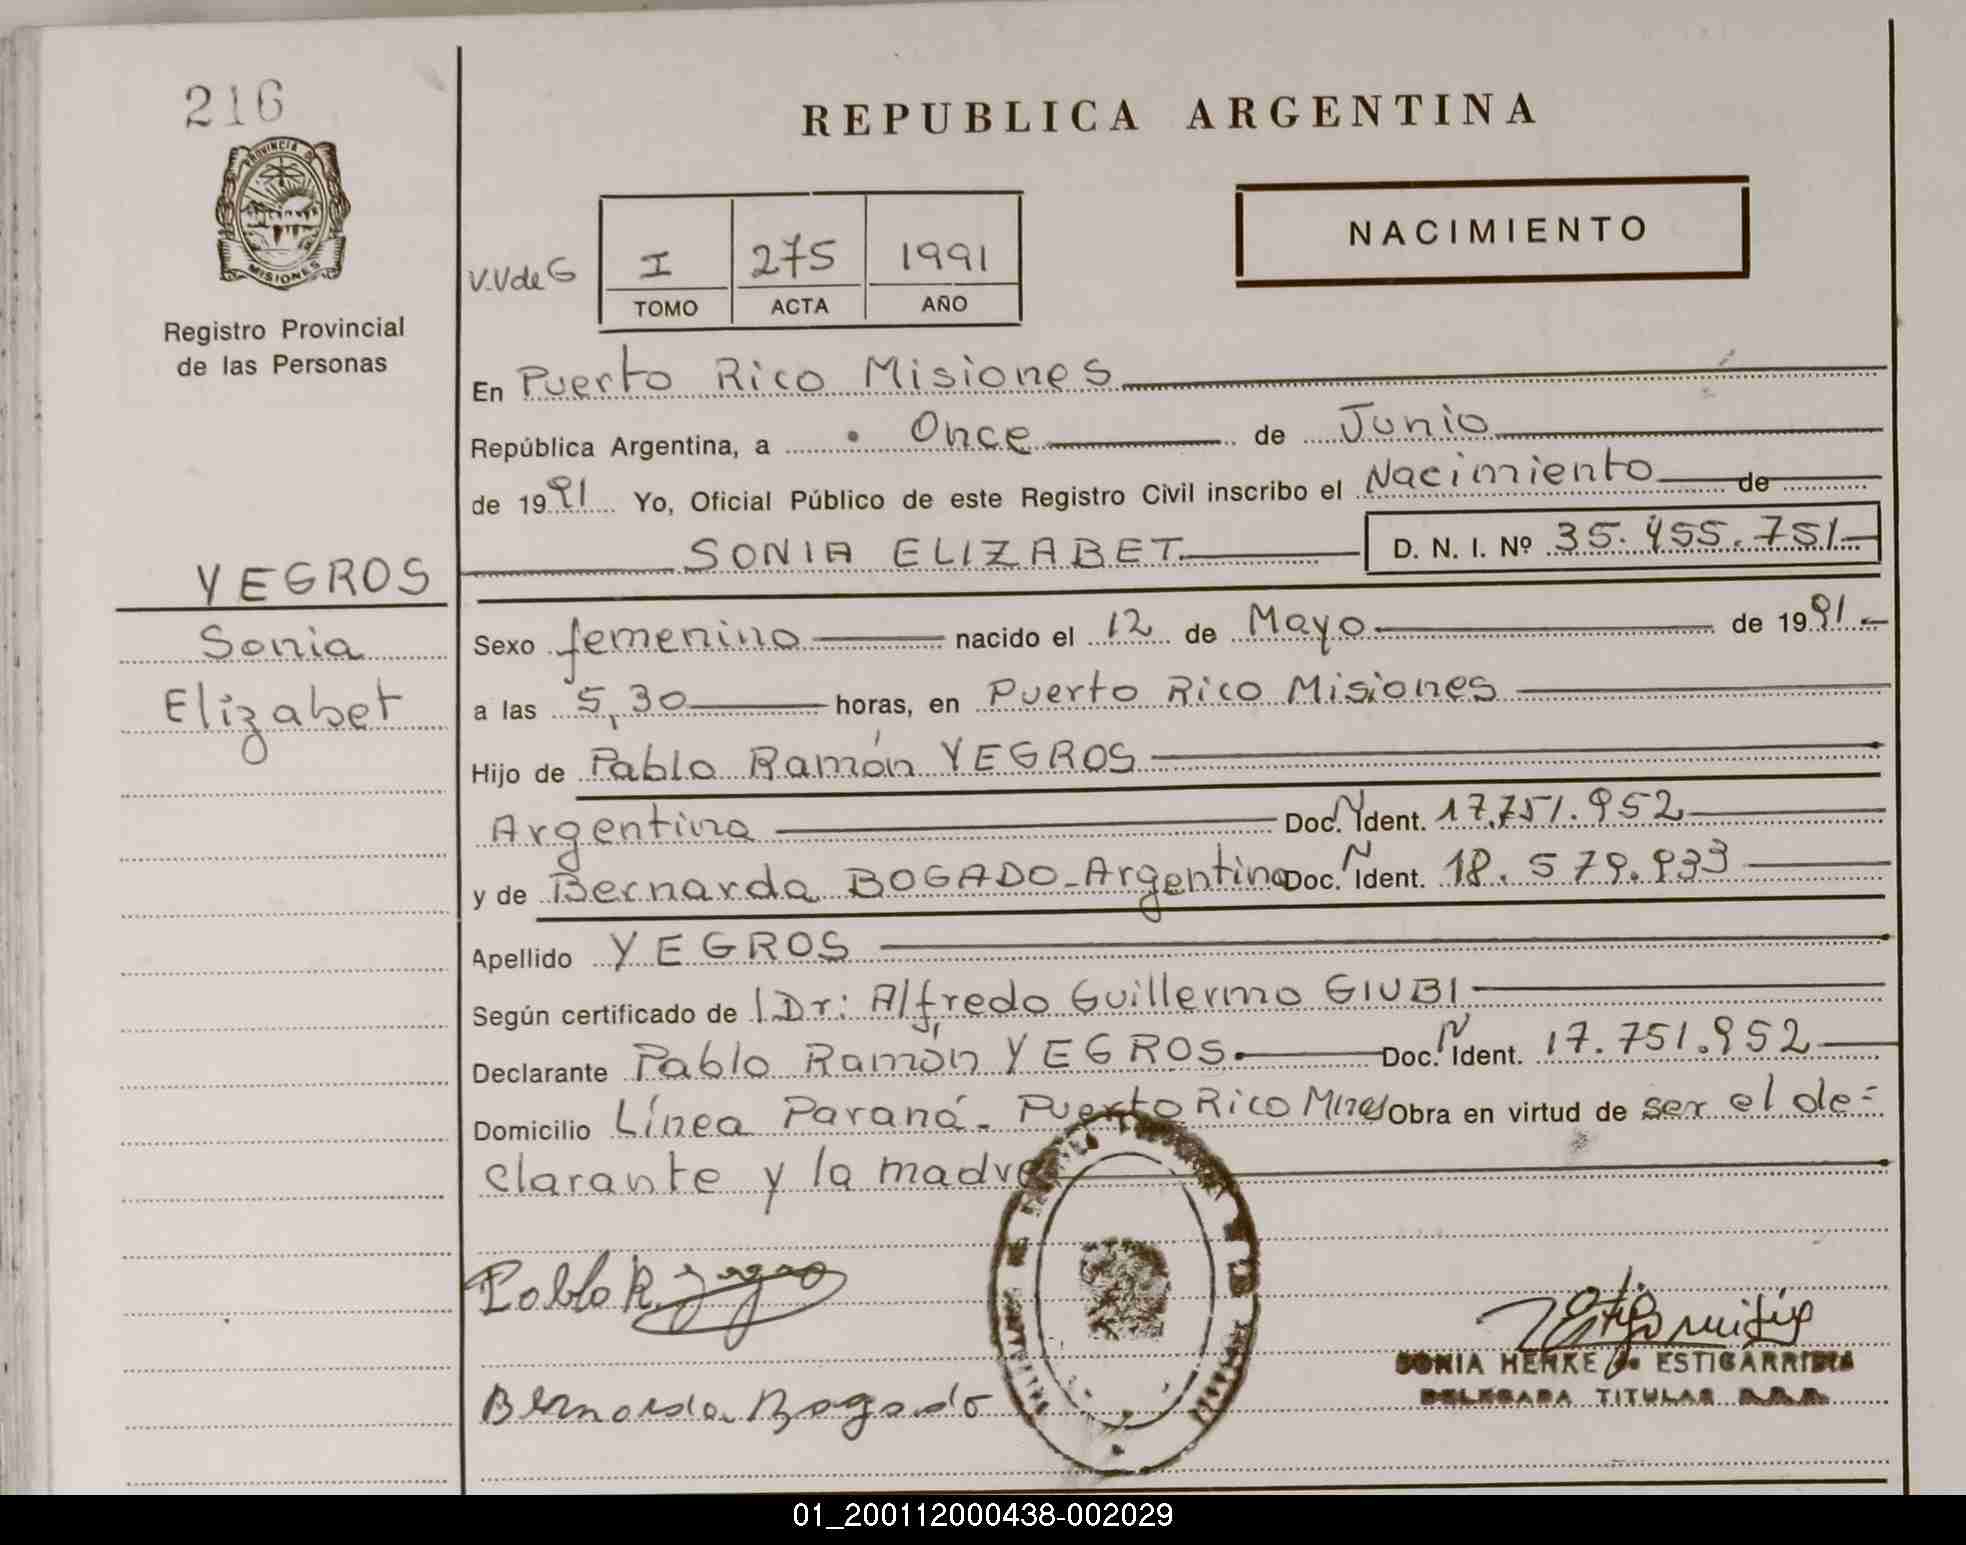 216
PROVINCIA DE
MISIONES
Registro Provincial
de las Personas
YEGROS
Sonia
Elizabet
REPUBLICA ARGENTINA
NACIMIENTO
V.V de G
I 275 1991
TOMO ACTA AÑO
En Puerto Rico Misiones
República Argentina, a Once de Junio
de 1991 Yo, Oficial Público de este Registro Civil inscribo el Nacimiento de
SONIA ELIZABET D. N. I. Nº 35.455.751
Sexo femenino nacido el 12 de Mayo de 1991
a las 5,30 horas, en Puerto Rico Misiones
Hijo de Pablo Ramón YEGROS
Argentino Doc. N Ident. 17.751.952
y de Bernarda BOGADO - Argentina Doc. N Ident. 18.579.933
Apellido YEGROS
Según certificado de l Dr: Alfredo Guillermo GIUBI
Declarante Pablo Ramón YEGROS. Doc. N Ident. 17.751.952
Domicilio Línea Paraná - Puerto Rico Mnes Obra en virtud de ser el de=
clarante y la madre
Pablo R. Yegro
Bernarda Bogado
SONIA HENKE de ESTIGARRIBIA
DELEGADA TITULAR
01_200112000438-002029